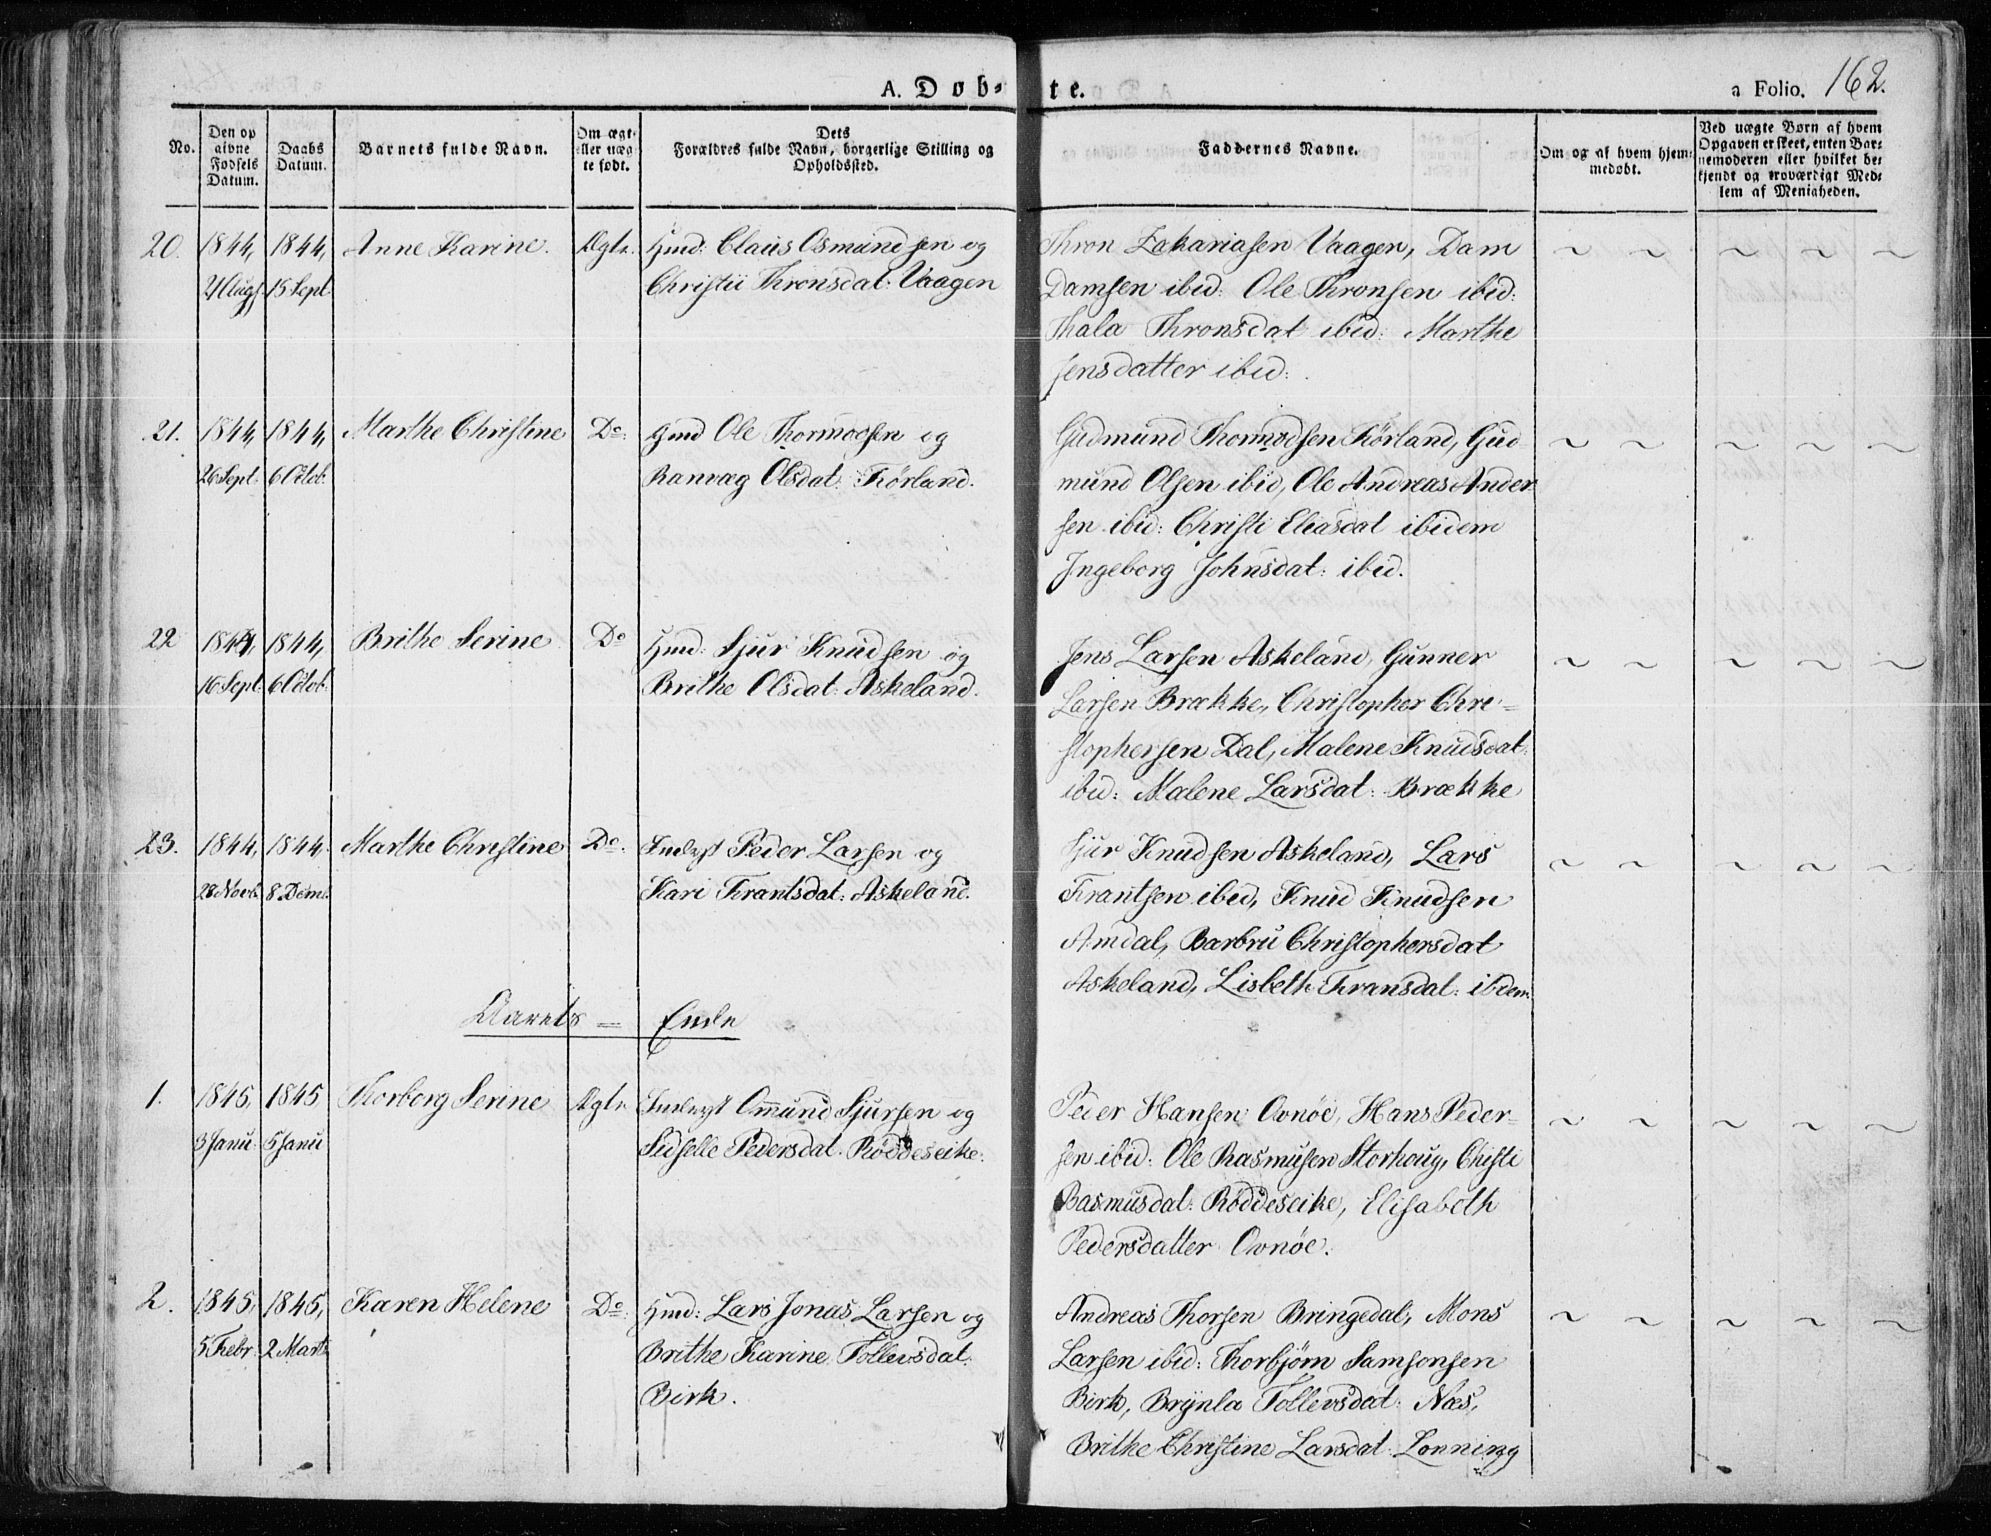 A. Døb- te.
a Folio. 162.
No.
Den op
givne
Fødsels
Datum.
Daabs
Datum.
Barnets fulde Navn.
Om ægt-
eller uæg-
te født.
Dets
Forældres fulde Navn, borgerlige Stilling og
Opholdssted.
Faddernes Navne.
Om og af hvem hjem-
medøbt.
Ved uægte Børn af hvem
Opgaven er skeet, enten Bar-
nemoderen eller hvilket be-
kjendt og troværdigt Med-
lem af Menigheden.
20.
1844,
Aug
1844,
15 Sept
Anne Karine.
Ægte.
Hmd: Claus Osmundsen og
Christie Thronsdat: Vaagen
Thron Zakariasen Vaagen, Dam
Damsen ibid: Ole Thronsen ibid:
Thala Thronsdat ibid: Marthe
Jensdatter ibid:
21.
1844,
26 Sept.
1844,
6 Octob.
Marthe Christine
Do.
Hmd Ole Thormodsen og
Ranvæg Olsdat: Førland.
Gudmund Thormodsen Førland, Gud-
mund Olsen ibid, Ole Andreas Ander
sen ibid: Christi Eliasdat ibidem
Ingeborg Johnsdat: ibid.
22
1844,
16 Sept
1844,
6 Octob.
Brithe Serine
Do
Hmd: Sjur Knudsen og
Brithe Olsdat: Askeland.
Jens Larsen Askeland, Gunner
Larsen Brække, Christopher Chri-
stophersen Dal, Malene Knudsdat:
ibid: Malene Larsdat: Brække
23.
1844,
28 Novb.
1844.
8 Dcmb.
Marthe Christine
Do.
Inderst Peder Larsen og
Kari Frantsdat: Askeland.
Sjur Knudsen Askeland, Lars
Frantsen ibid, Knud Knudsen
Amdal, Barbru Christophersdat
Askeland, Lisbeth Fransdat: ibidem.
Aarets = Ende
1.
1845,
3 Janu.
1845
5 Janu
Thorborg Serine
Ægte
Inderst Ommund Sjursen og
Sidselle Pedersdat. Røddeseike.
Peder Hansen Ovnøe, Hans Peder-
sen ibid: Ole Rasmusen Storhoug, Christi
Rasmusdat: Røddeseike, Elisabeth
Pedersdatter Ovnøe.
2.
1845,
5 Febr.
1845,
2 Marts
Karen Helene
Do.
Hmd: Lars Jonas Larsen og
Brithe Karine Tollevsdat:
Birk.
Andreas Thorsen Bringedal, Mons
Larsen ibid: Thorbjørn Samsonsen
Birk, Brynla Tollevsdat: Næs,
Brithe Christine Larsdat: Lonning